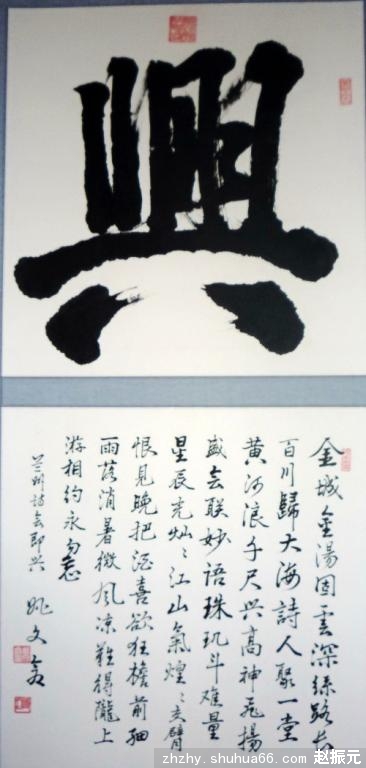 興
金城金湯固雲深絲路长
百川歸大海詩人聚一堂
黄河浪千尺兴高神飛揚
盛会联妙语珠玑斗难量
星辰光灿々江山氣煌々交臂
恨見晚把酒喜欲狂檐前细
雨落消暑微風凉難得隴上
游相约永勿忘
兰州诗会即兴 姚文仓
zhzhy.shuhua66.com 赵振元